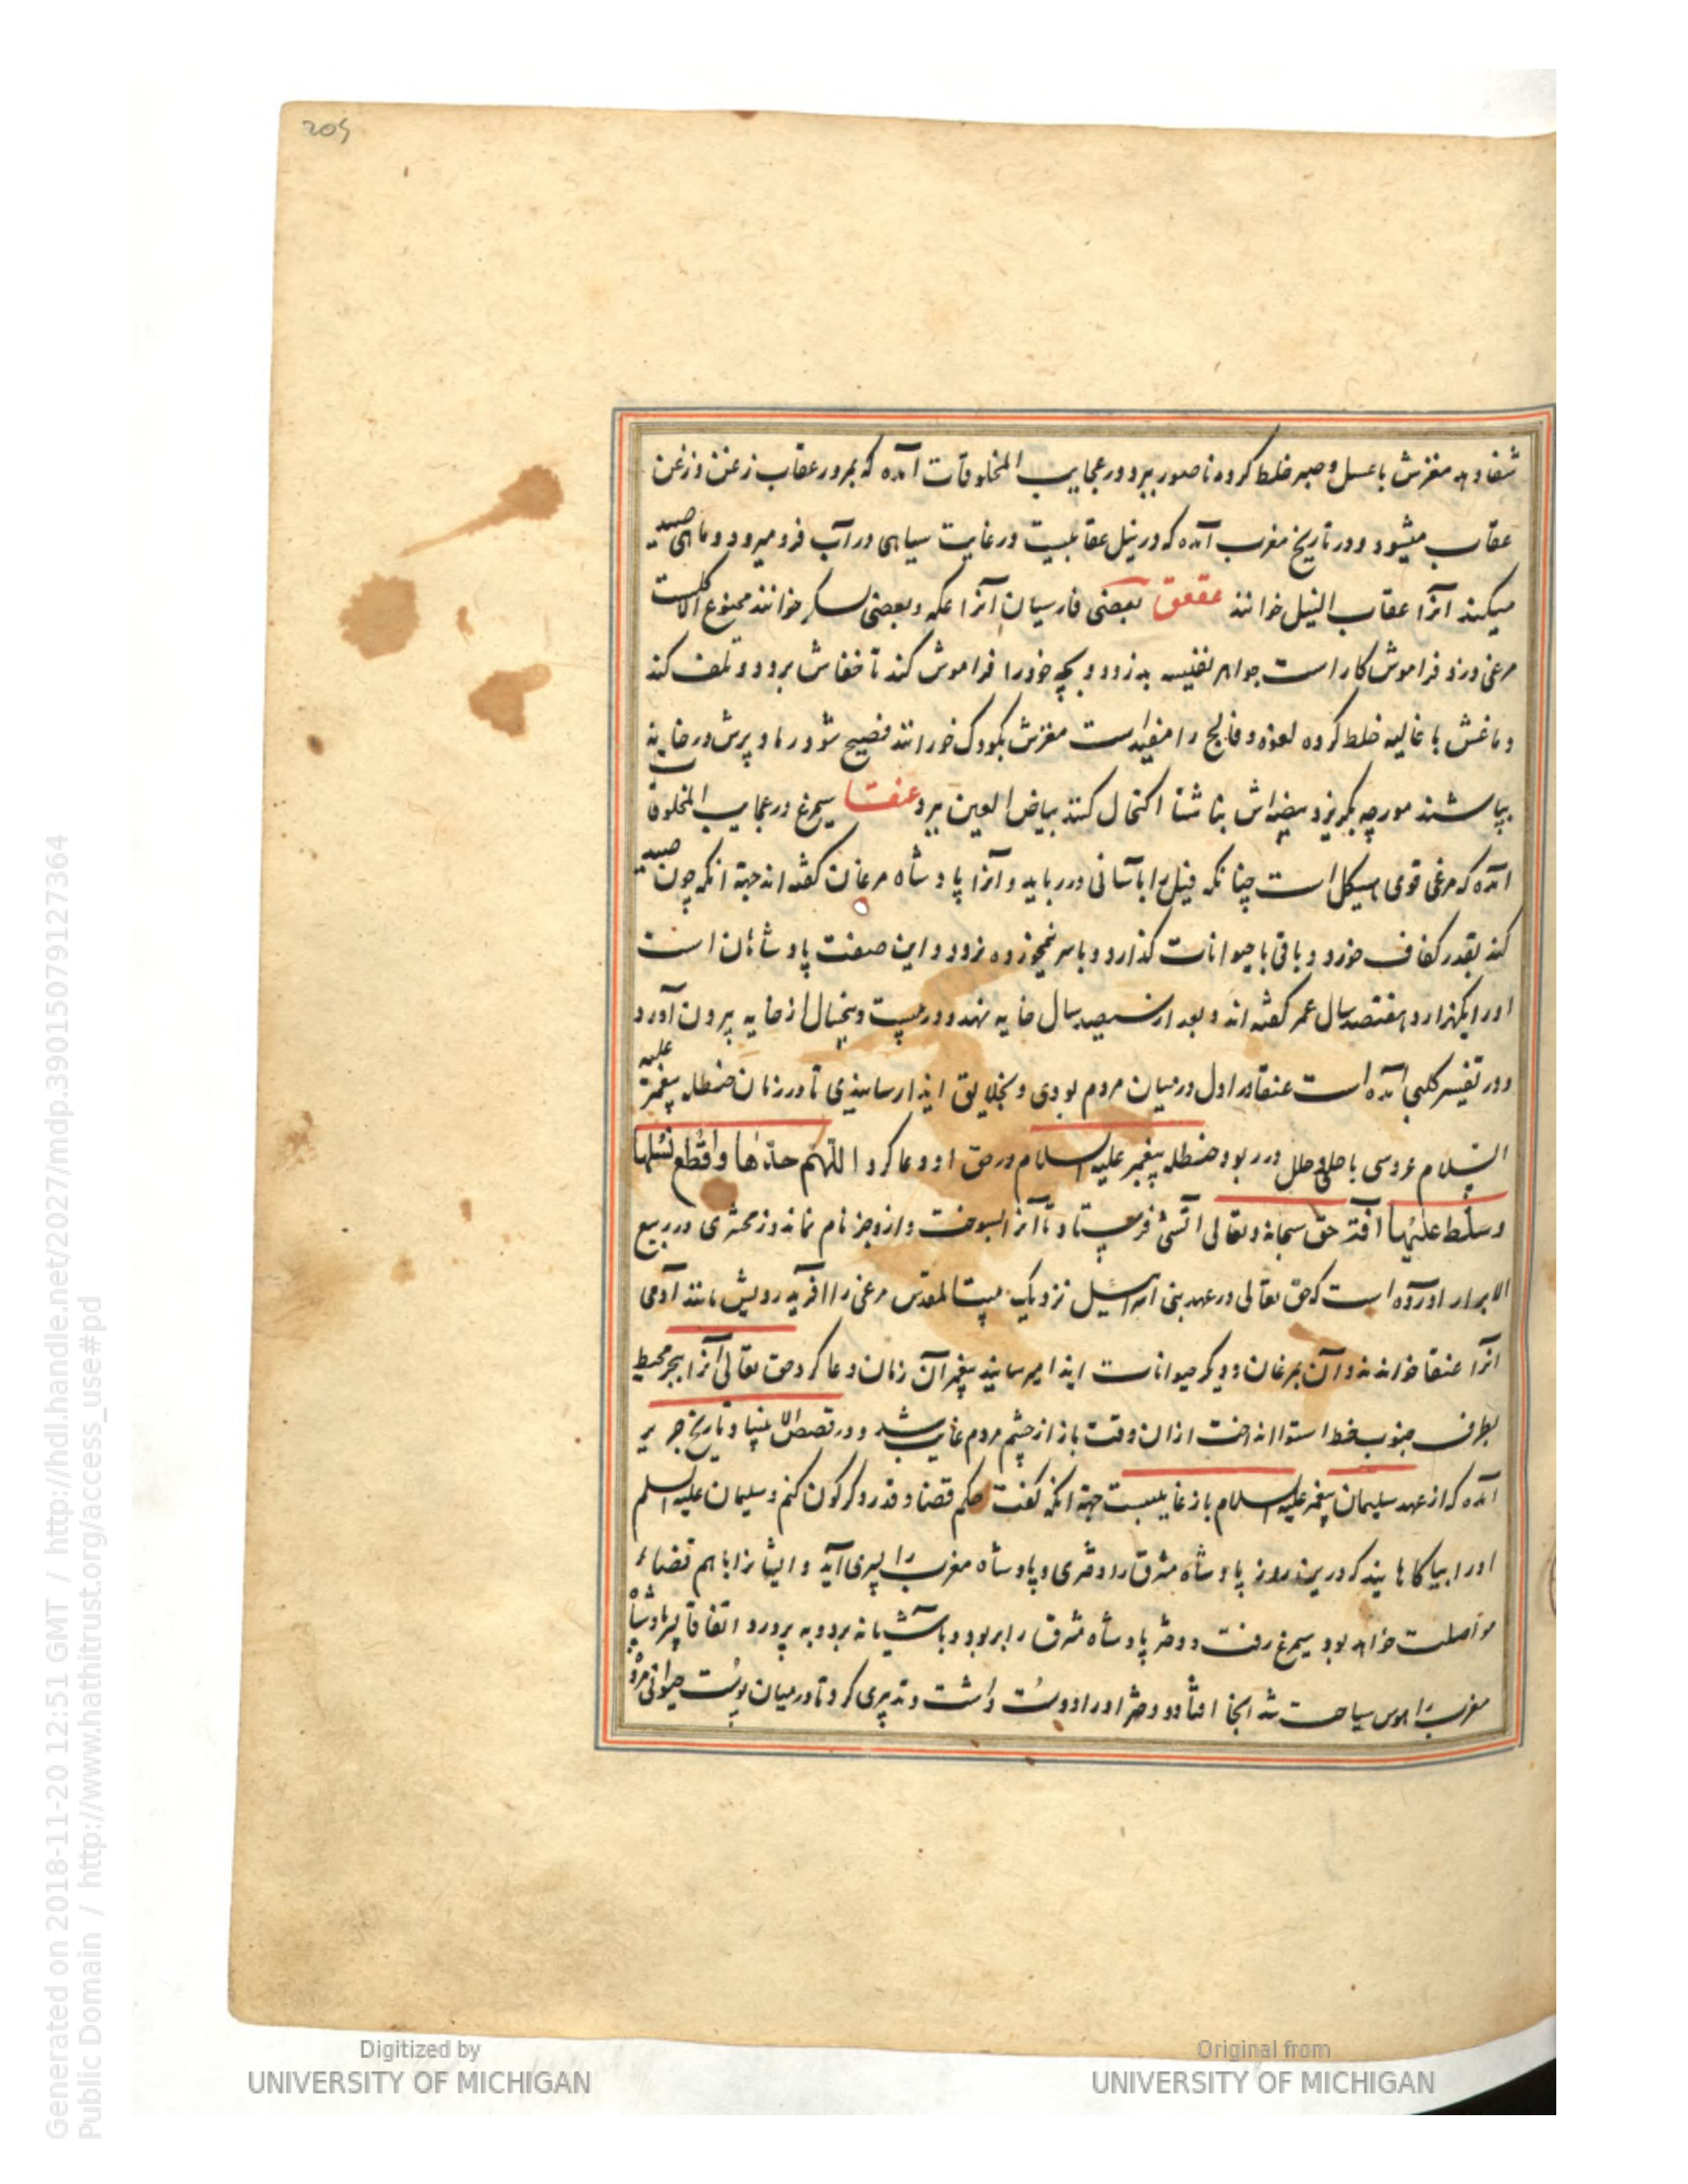 205
شفا دهد مغزش با عسل و صبر خلط کرده ناصور ببرد در عجایب المخلوقات آمده که بمرور عقاب زغن و زغن
عقاب میشود و در تاریخ مغرب آمده که در نیل عقابیست در غایت سیاهی در آب فرو میرود و ماهی صید
میکند آنرا عقاب النیل خوانند عقعق بعضی فارسیان آنرا عکه و بعضی خوانند ممنوع الاکلست
مرغی دزد و فراموش کار است جواهر نفیسه بدزدد و بچه خود را فراموش کند تا خفاش برد و تلف کند
دماغش با غالیه خلط کرده لقوه و فالج را مفید است مغزش بکودک خورانند فصیح شود رماد پرش در خانه
بپاشند مورچه بگریزد بیضه‌اش اکتحال کنند بیاض العین ببرد عنقا سیمرغ در عجایب المخلوقا
آمده که مرغی قوی هیکل است چنانکه فیل را بآسانی در رباید و آنرا پادشاه مرغان گفته‌اند جهة آنکه چون صید
کند بقدر کفاف خورد و باقی با حیوانات گذارد و باسر نیمخورده نرود و این صفت پادشاهان است
او را یکهزار و هفتصد سال عمر گفته‌اند و بعد از سیصد سال خایه نهد و در بیست و پنجسال از خایه بیرون آورد
و در تفسیر کلبی آمده است عنقا در اول در میان مردم بودی و بخلایق ایذا رسانیدی تا در زمان حنظله پیغمبر علیه
السلام عروسی با حلی و حلل در ربود حنظله پیغمبر علیه السلام در حق او دعا کرد اللهم خذها واقطع نسلها
وسلط علیها آفة حق سبحانه و تعالی آتشی فرستاد تا آنرا بسوخت و ازو جز نام نماند و زمخشری در ربیع
الابرار آورده است که حق تعالی در عهد بنی اسرائیل نزدیک بیت المقدس مرغی را آفرید رویش مانند آدمی
آنرا عنقا خواندند و آن بمرغان و دیگر حیوانات ایذا میرسانید پیغمبر آن زمان دعا کرد حق تعالی آنرا ببحر محیط
بطرف جنوب خط استوا انداخت از آن وقت باز از چشم مردم غایب شد و در قصص الانبیا و تاریخ جریر
آمده که از عهد سلیمان پیغمبر علیه السلام باز غایبست جهة آنکه گفت حکم قضا و قدر دگرگون کنم و سلیمان علیه السلم
او را بیاگاهانید که درین روز پادشاه مشرق را دختری و پادشاه مغرب را پسری آید و ایشانرا باهم قضاء
مواصلت خواهد بود سیمرغ رفت و دختر پادشاه مشرق را بربود و بآشیانه برد و به پرورد اتفاقا پسر پادشاه
مغرب را هوس سیاحت شد آنجا افتاد و دختر او را دوست داشت و تدبیری کرد تا در میان پوست حیوانی مرده
Generated on 2018-11-20 12:51 GMT / http://hdl.handle.net/2027/mdp.39015079127364
Public Domain / http://www.hathitrust.org/access_use#pd
Digitized by
UNIVERSITY OF MICHIGAN
Original from
UNIVERSITY OF MICHIGAN